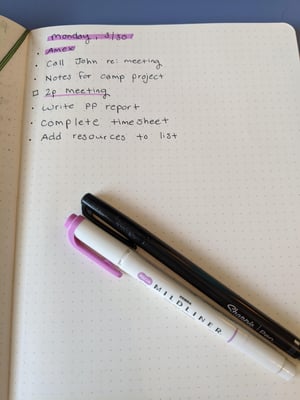 Monday, 1/30
• Amex
• Call John re: meeting
• Notes for camp project
□ 2p meeting
• Write PP report
• Complete timesheet
• Add resources to list
Sharpie pen
ZEBRA
MILDLINER